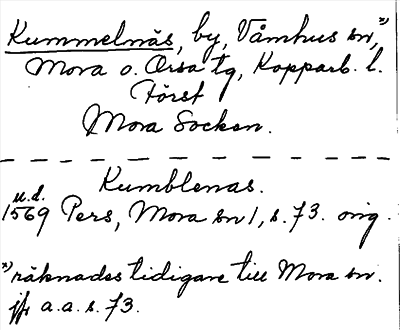 Kummelnäs, by, Våmhus sn,*)
Mora o. Orsa tg, Kopparb. l.
Först
Mora Socken.
Kumblenas.
u.d.
1569 Pers, Mora sn 1, s. 73. orig.
*) räknades tidigare till Mora sn.
jfr a.a. s. 73.